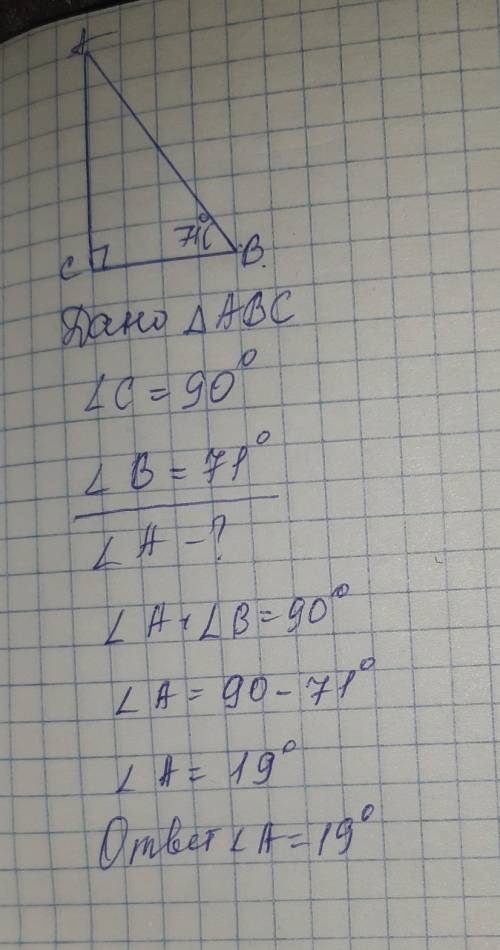 A
71°
C
B
Дано △ABC
∠C = 90°
∠B = 71°
∠A - ?
∠A + ∠B = 90°
∠A = 90 - 71°
∠A = 19°
Ответ ∠A = 19°